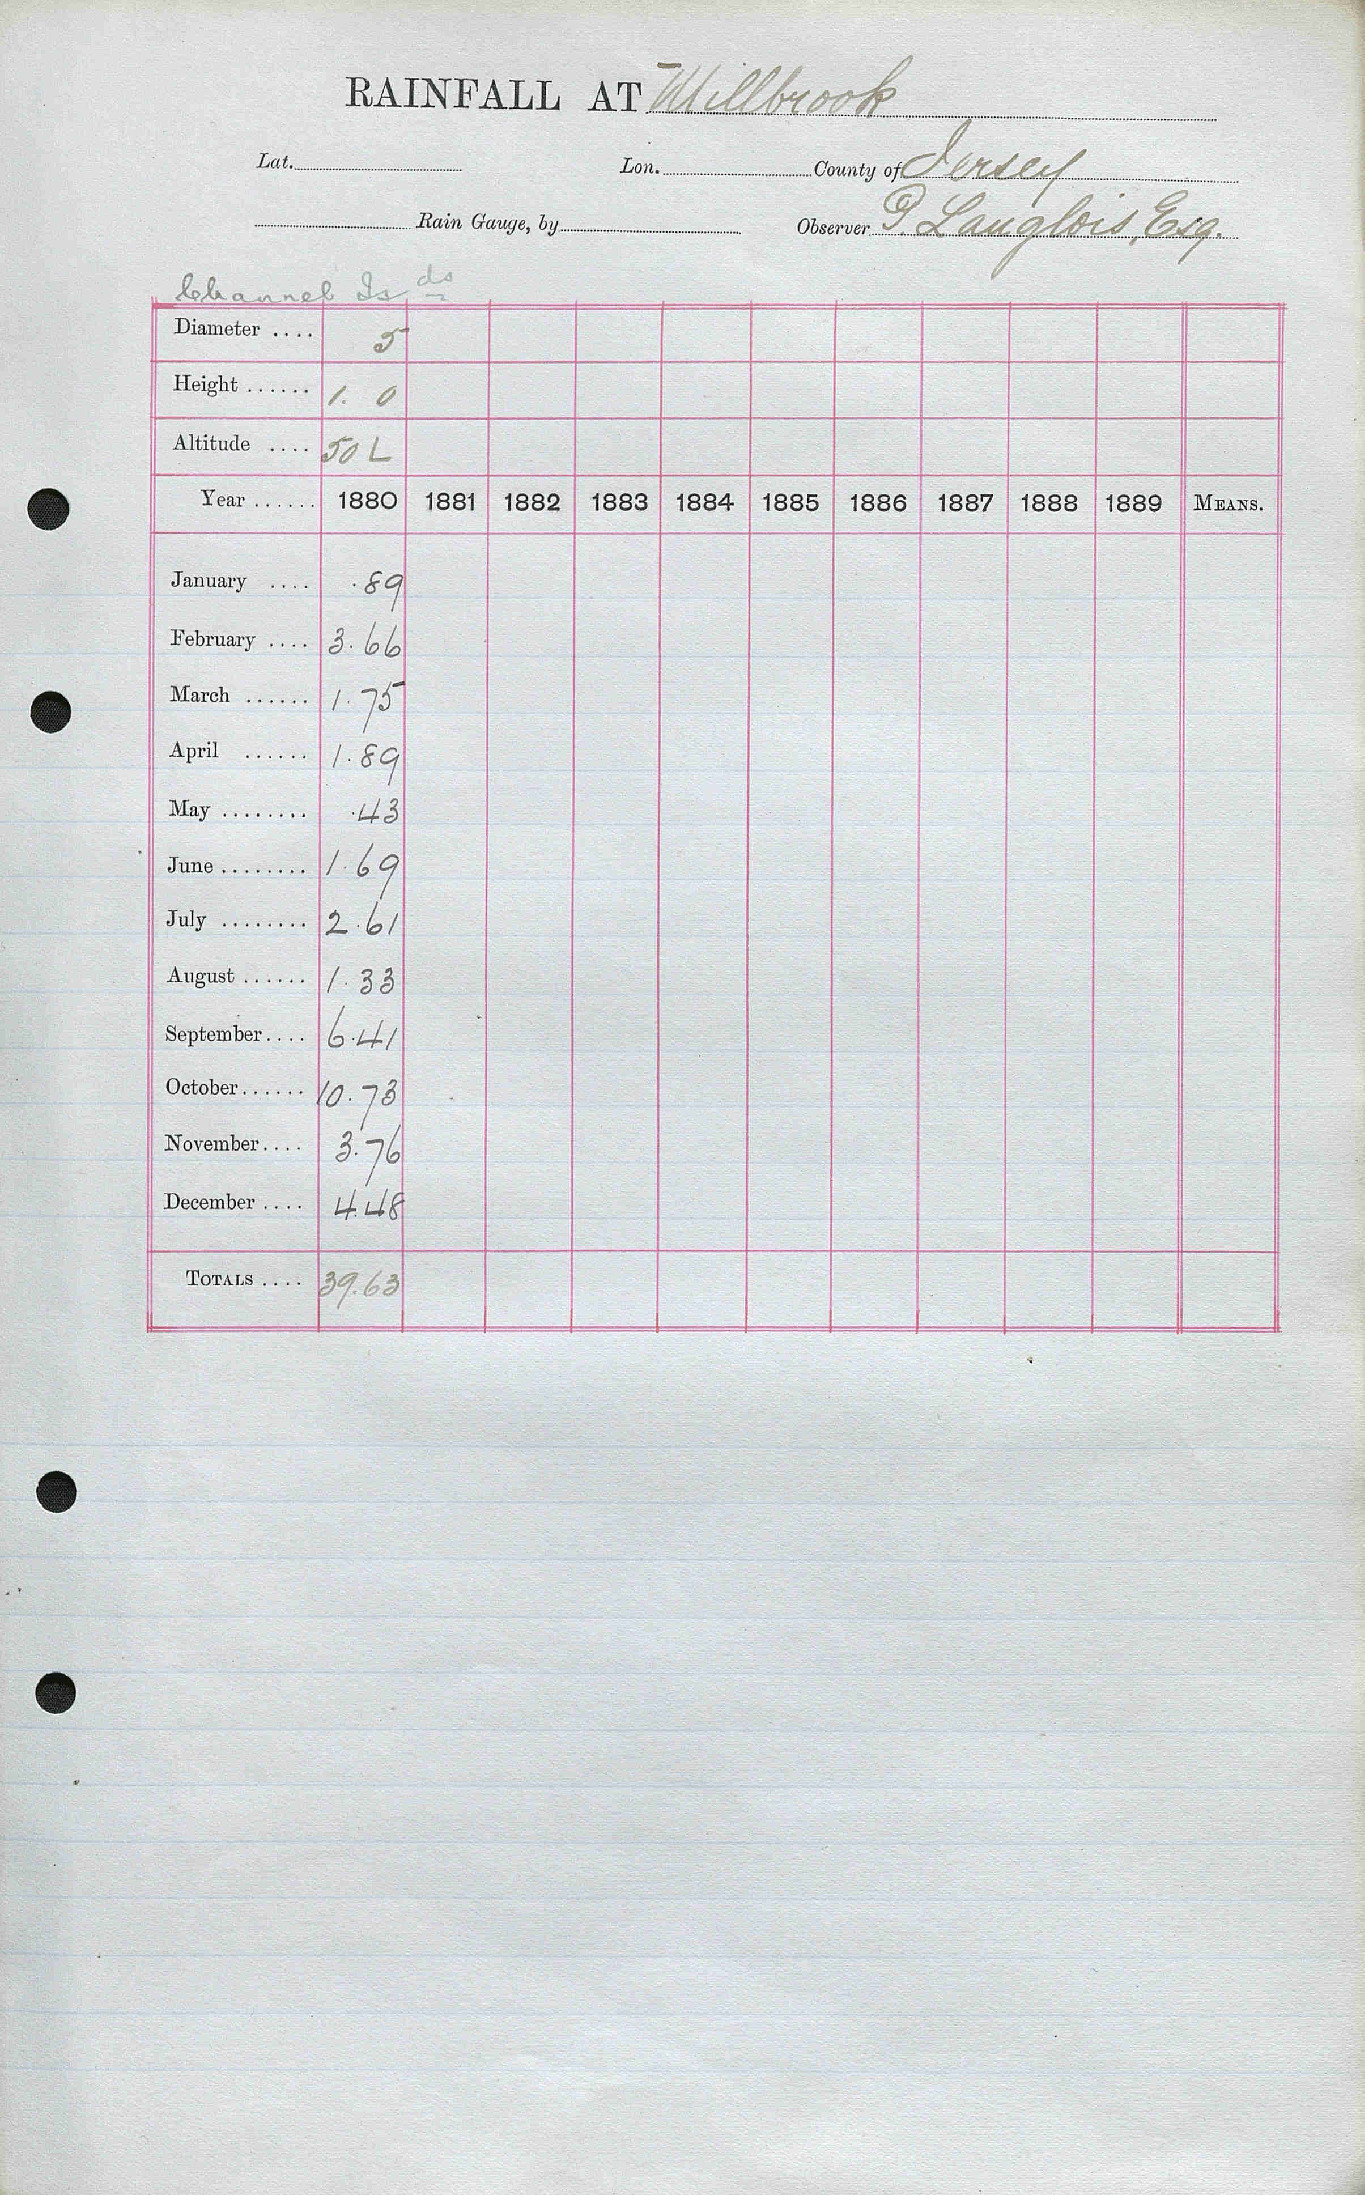 RAINFALL AT Millbrook
Lat. Lon. County of Jersey
Rain Gauge, by Observer P Langlois, Esq.
Channel Is ds
Diameter .... 5
Height ...... 1. 0
Altitude .... 50 L
Year ...... 1880 1881 1882 1883 1884 1885 1886 1887 1888 1889 MEANS.
January .... .89
February .... 3.66
March ...... 1.75
April ...... 1.89
May ........ .43
June ........ 1.69
July ........ 2.61
August ...... 1.33
September .... 6.41
October ...... 10.73
November .... 3.76
December .... 4.48
TOTALS .... 39.63